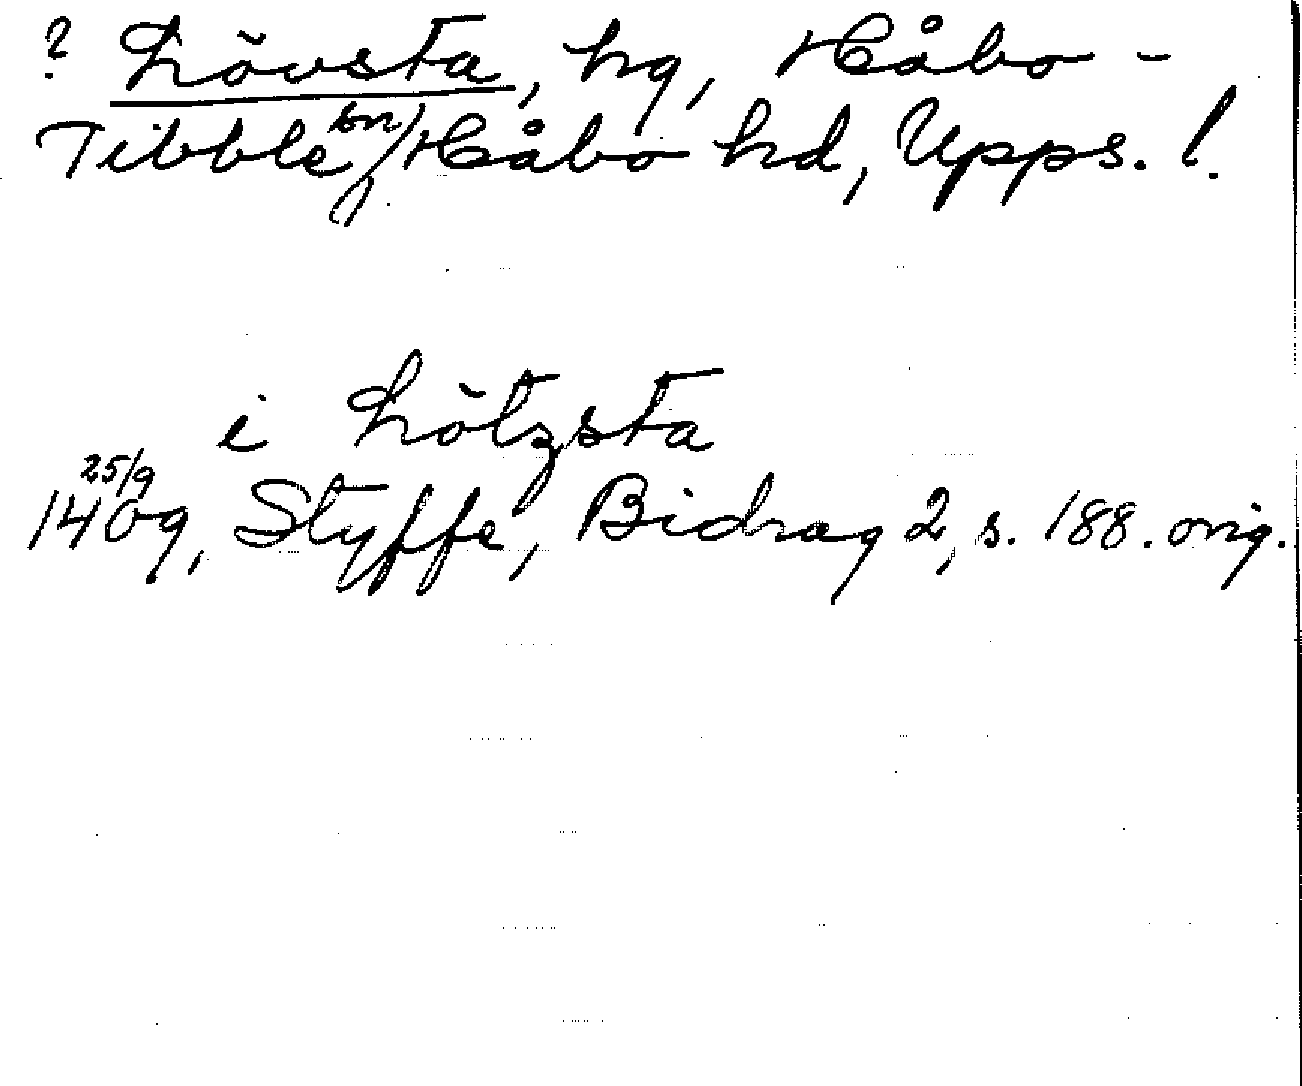 ? Lövsta, hg, Håbo-
Tibble sn, Håbo hd, Upps. l.
i Lötzsta
25/9
1409, Styffe, Bidrag 2, s. 188. orig.